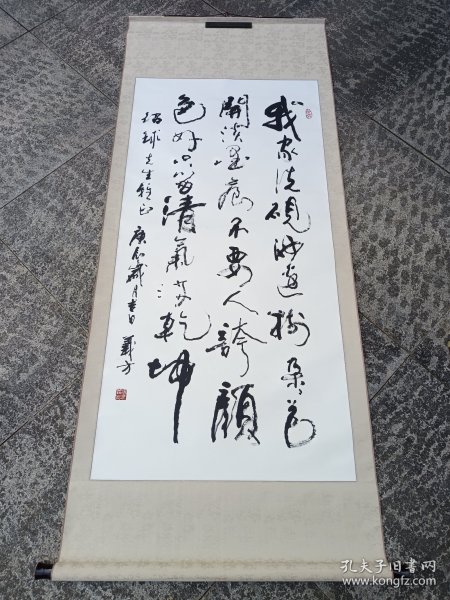 我家洗硯池邊樹朵々花
開淡墨痕不要人誇顏
色好只留清氣滿乾坤
球先生雅正 庚辰歲月吉日 義方
孔夫子旧书网
www.kongfz.com